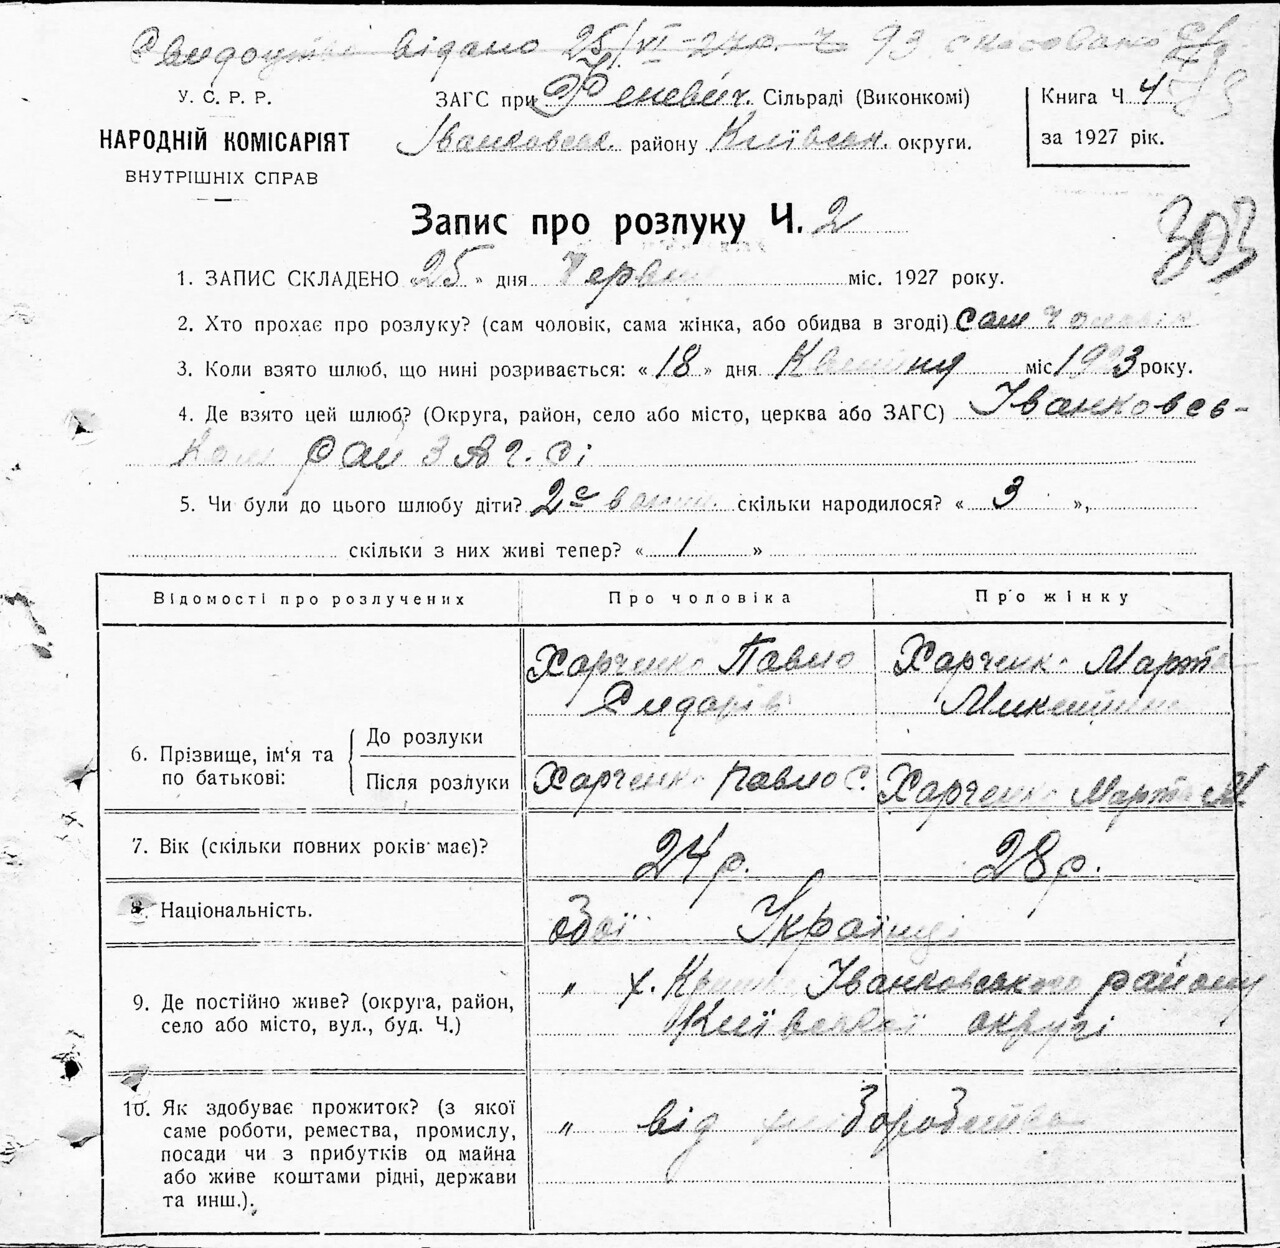 відано 25/VI-27р. Ч 93 скасовано
У. С. Р. Р.
НАРОДНІЙ КОМІСАРІЯТ
ВНУТРІШНІХ СПРАВ
ЗАГС при Феневич. Сільраді (Виконкомі)
Іванковськ. району Київськ. округи.
Книга Ч 4
за 1927 рік.
Запис про розлуку Ч. 2
303
1. ЗАПИС СКЛАДЕНО 25 » дня Червня міс. 1927 року.
2. Хто прохає про розлуку? (сам чоловік, сама жінка, або обидва в згоді) Сам чоловік
3. Коли взято шлюб, що нині розривається: « 18 » дня Квітня міс 1923 року.
4. Де взято цей шлюб? (Округа, район, село або місто, церква або ЗАГС) Іванковсь-
ком рай ЗАГ.Сі
5. Чи були до цього шлюбу діти? скільки народилося? « 3 »,
скільки з них живі тепер? « 1 »
Відомості про розлучених
Про чоловіка
Про жінку
6. Прізвище, ім‘я та по батькові:
До розлуки
Харченко Павло
Сидорів
Харченко Марта
Микитина
Після розлуки
Харченко Павло С.
Харченко Марта М.
7. Вік (скільки повних років має)?
24 р.
28 р.
8. Національність.
Обої Українці
9. Де постійно живе? (округа, район,
село або місто, вул., буд. Ч.)
„ х. Іванковського району
Київської округи
10. Як здобуває прожиток? (з якої
саме роботи, ремества, промислу,
посади чи з прибутків од майна
або живе коштами рідні, держави
та инш.).
„ від хліборобства